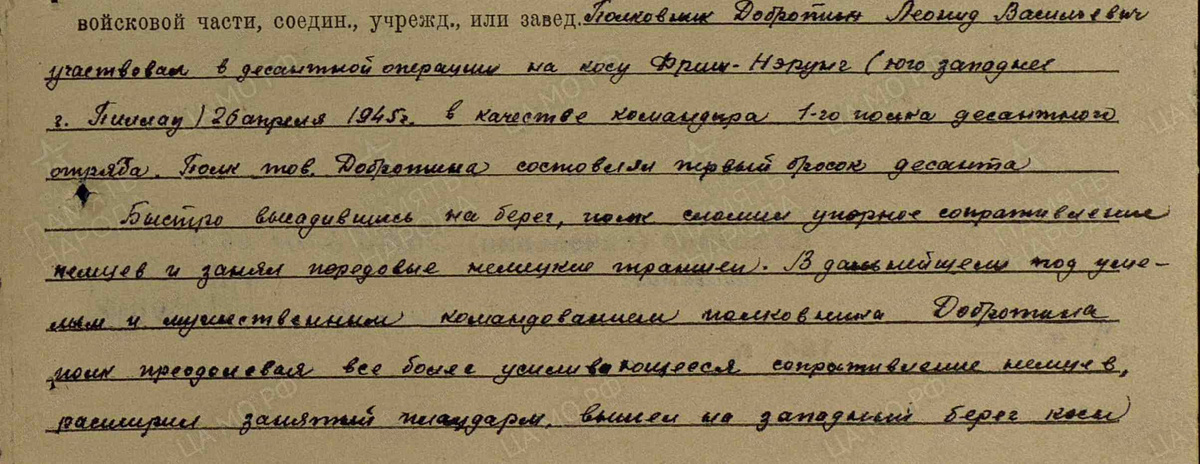 войсковой части, соедин., учрежд., или завед. Полковник Добротин Леонид Васильевич
участвовал в десантной операции на косу Фриш-Нэрунг (юго западнее
г. Пиллау) 26 апреля 1945г. в качестве командира 1-го полка десантного
отряда. Полк тов. Добротина состовлял первый бросок десанта
Быстро высадившись на берег, полк сломил упорное сопративление
немцев и занял передовые немецкие траншеи. В дальнейшем под уме-
лым и мужественным командованием полковника Добротина
полк преодолевая все более усиливающееся сопративление немцев,
расширил занятый плацдарм, вышел на западный берег косы